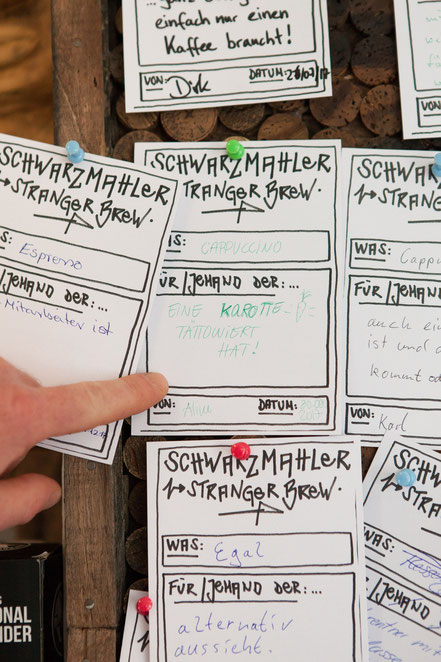 ...ganz
einfach nur einen
Kaffee braucht!
VON: Dirk
DATUM:
SCHWARZMAHLER
STRANGER BREW.
WAS: Espresso
FÜR/JEMAND DER:...
Mitarbeiter ist
SCHWARZMAHLER
STRANGER BREW.
WAS: CAPPUCCINO
FÜR/JEMAND DER:...
EINE KAROTTE
TÄTTOWIERT
HAT!
VON:
DATUM:
SCHWARZMAHLER
STRANGER BREW.
WAS: Cappu
FÜR/JEMAND
auch ei
ist und
kommt od
VON: Karl
SCHWARZMAHLER
STRANGER BREW.
WAS: Egal
FÜR/JEMAND DER:...
alternativ
aussieht.
SCHWARZMAHLER
STRANGER BREW.
WAS:
FÜR/JEMAND
ONAL
IDER